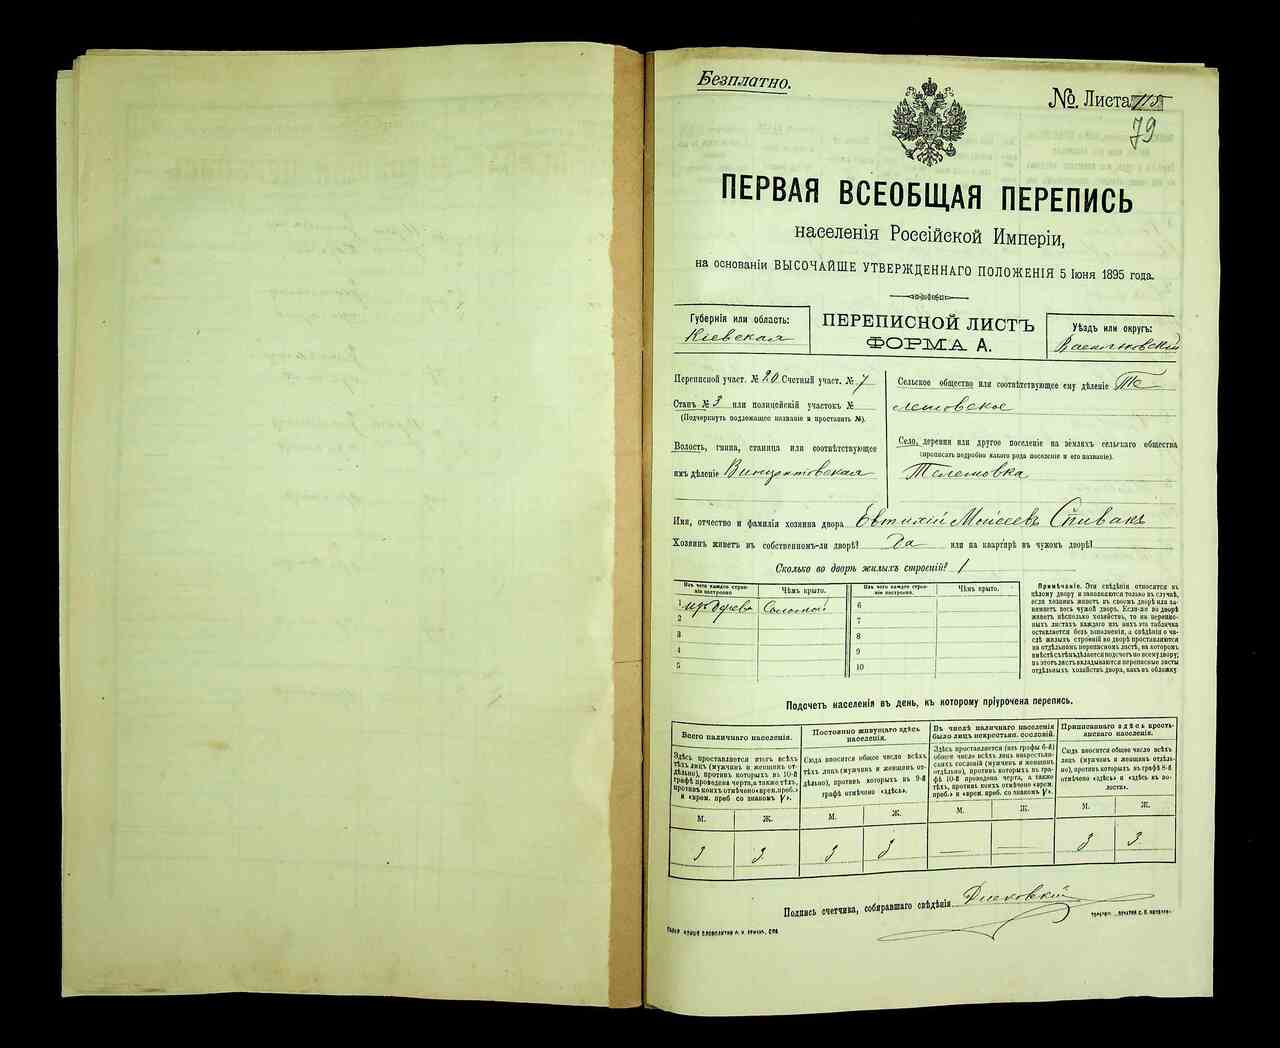 Безплатно.
№ Листа 115
79
ПЕРВАЯ ВСЕОБЩАЯ ПЕРЕПИСЬ
населенія Россійской Имперіи,
на основаніи ВЫСОЧАЙШЕ УТВЕРЖДЕННАГО ПОЛОЖЕНІЯ 5 Іюня 1895 года.
Губернія или область:
Кіевская
ПЕРЕПИСНОЙ ЛИСТЪ
ФОРМА А.
Уѣздъ или округъ:
Васильковскій
Переписной участ. № 20 Счетный участ. № 7
Станъ № 3 или полицейскій участокъ №
(Подчеркнуть подлежащее названіе и проставить №).
Волость, гмина, станица или соотвѣтствующее
имъ дѣленіе Винцентовская
Сельское общество или соотвѣтствующее ему дѣленіе Те
лешовское
Село, деревня или другое поселеніе на земляхъ сельскаго общества
(прописать подробно какого рода поселеніе и его названіе).
Телешовка
Имя, отчество и фамилія хозяина двора Евтихій Моисеевъ Спивакъ
Хозяинъ живетъ въ собственномъ-ли дворѣ? Да или на квартирѣ въ чужомъ дворѣ?
Сколько во дворѣ жилыхъ строеній? 1
Изъ чего каждое строеніе построено
Чѣмъ крыто.
Изъ чего каждое строеніе построено
Чѣмъ крыто.
1 изъ дерева Соломой
2
3
4
5
6
7
8
9
10
Примѣчаніе. Эти свѣдѣнія относятся къ
цѣлому двору и заполняются только въ случаѣ,
если хозяинъ живетъ въ своемъ дворѣ или занимаетъ
весь чужой дворъ. Если-же во дворѣ
живетъ нѣсколько хозяйствъ, то на переписныхъ
листахъ каждаго изъ нихъ эта табличка
оставляется безъ заполненія, а свѣдѣнія о числѣ
жилыхъ строеній во дворѣ проставляются
на отдѣльномъ переписномъ листѣ, на которомъ
вмѣстѣ съ тѣмъ дѣлается подсчетъ по всему двору;
въ этотъ листъ вкладываются переписные листы
отдѣльныхъ хозяйствъ двора, какъ въ обложку
Подсчетъ населенія въ день, къ которому пріурочена перепись.
Всего наличнаго населенія.
Постоянно живущаго здѣсь населенія.
Въ числѣ наличнаго населенія было лицъ некрестьян. сословій.
Приписаннаго здѣсь крестьянскаго населенія.
Здѣсь проставляется итогъ всѣхъ
тѣхъ лицъ (мужчинъ и женщинъ отдѣльно),
противъ которыхъ въ 10-й
графѣ проведена черта, а также тѣхъ,
противъ коихъ отмѣчено «врем. преб.»
и «врем. преб со знакомъ V».
Сюда вносится общее число всѣхъ
тѣхъ лицъ (мужчинъ и женщинъ отдѣльно),
противъ которыхъ въ 9-й
графѣ отмѣчено «здѣсь».
Здѣсь проставляется (изъ графы 6-й)
общее число всѣхъ лицъ некрестьянскихъ
сословій (мужчинъ и женщинъ
отдѣльно), противъ которыхъ въ графѣ
10 проведена черта, а также
тѣхъ, противъ коихъ отмѣчено «врем.
преб.» и «врем. преб. со знакомъ V».
Сюда вносится общее число всѣхъ
лицъ (мужчинъ и женщинъ отдѣльно),
противъ которыхъ въ графѣ 8-й
отмѣчено «здѣсь» и «здѣсь въ волости».
М. Ж. М. Ж. М. Ж. М. Ж.
3 3 3 3 — — 3 3
Подпись счетчика, собиравшаго свѣдѣнія